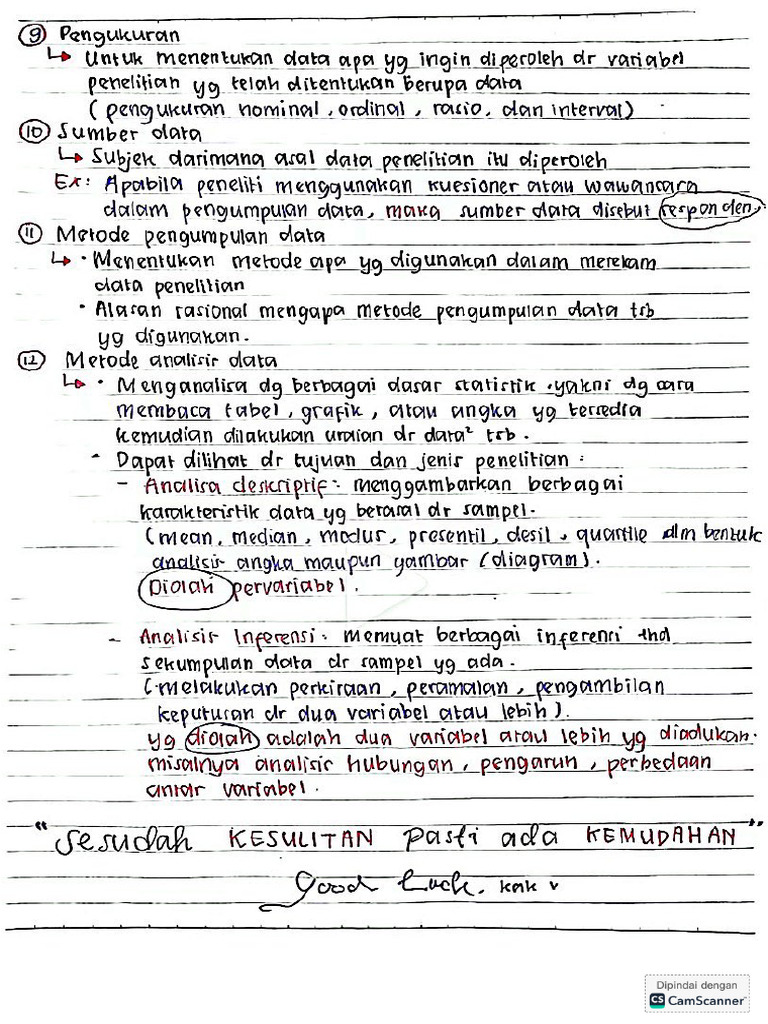 ⑨ Pengukuran
↳ Untuk menentukan data apa yg ingin diperoleh dr variabel
penelitian yg telah ditentukan berupa data
(pengukuran nominal, ordinal, rasio, dan interval)
⑩ Sumber data
↳ Subjek darimana asal data penelitian itu diperoleh
Ex: Apabila peneliti menggunakan kuesioner atau wawancara
dalam pengumpulan data, maka sumber data disebut responden.
⑪ Metode pengumpulan data
↳ • Menentukan metode apa yg digunakan dalam merekam
data penelitian
• Alasan rasional mengapa metode pengumpulan data tsb
yg digunakan.
⑫ Metode analisis data
↳ • Menganalisa dg berbagai dasar statistik, yakni dg cara
membaca tabel, grafik, atau angka yg tersedia
kemudian dilakukan uraian dr data² tsb.
• Dapat dilihat dr tujuan dan jenis penelitian :
- Analisa deskriptif : menggambarkan berbagai
karakteristik data yg berasal dr sampel.
(mean, median, modus, presentil, desil, quartile dlm bentuk
analisis angka maupun gambar (diagram).
Diolah pervariabel.
- Analisis Inferensi : memuat berbagai inferensi thd
sekumpulan data dr sampel yg ada.
(melakukan perkiraan, peramalan, pengambilan
keputusan dr dua variabel atau lebih).
yg diolah adalah dua variabel atau lebih yg diadukan.
misalnya analisis hubungan, pengaruh, perbedaan
antar variabel.
"Sesudah KESULITAN pasti ada KEMUDAHAN"
good luck, kak
Dipindai dengan
CS CamScanner